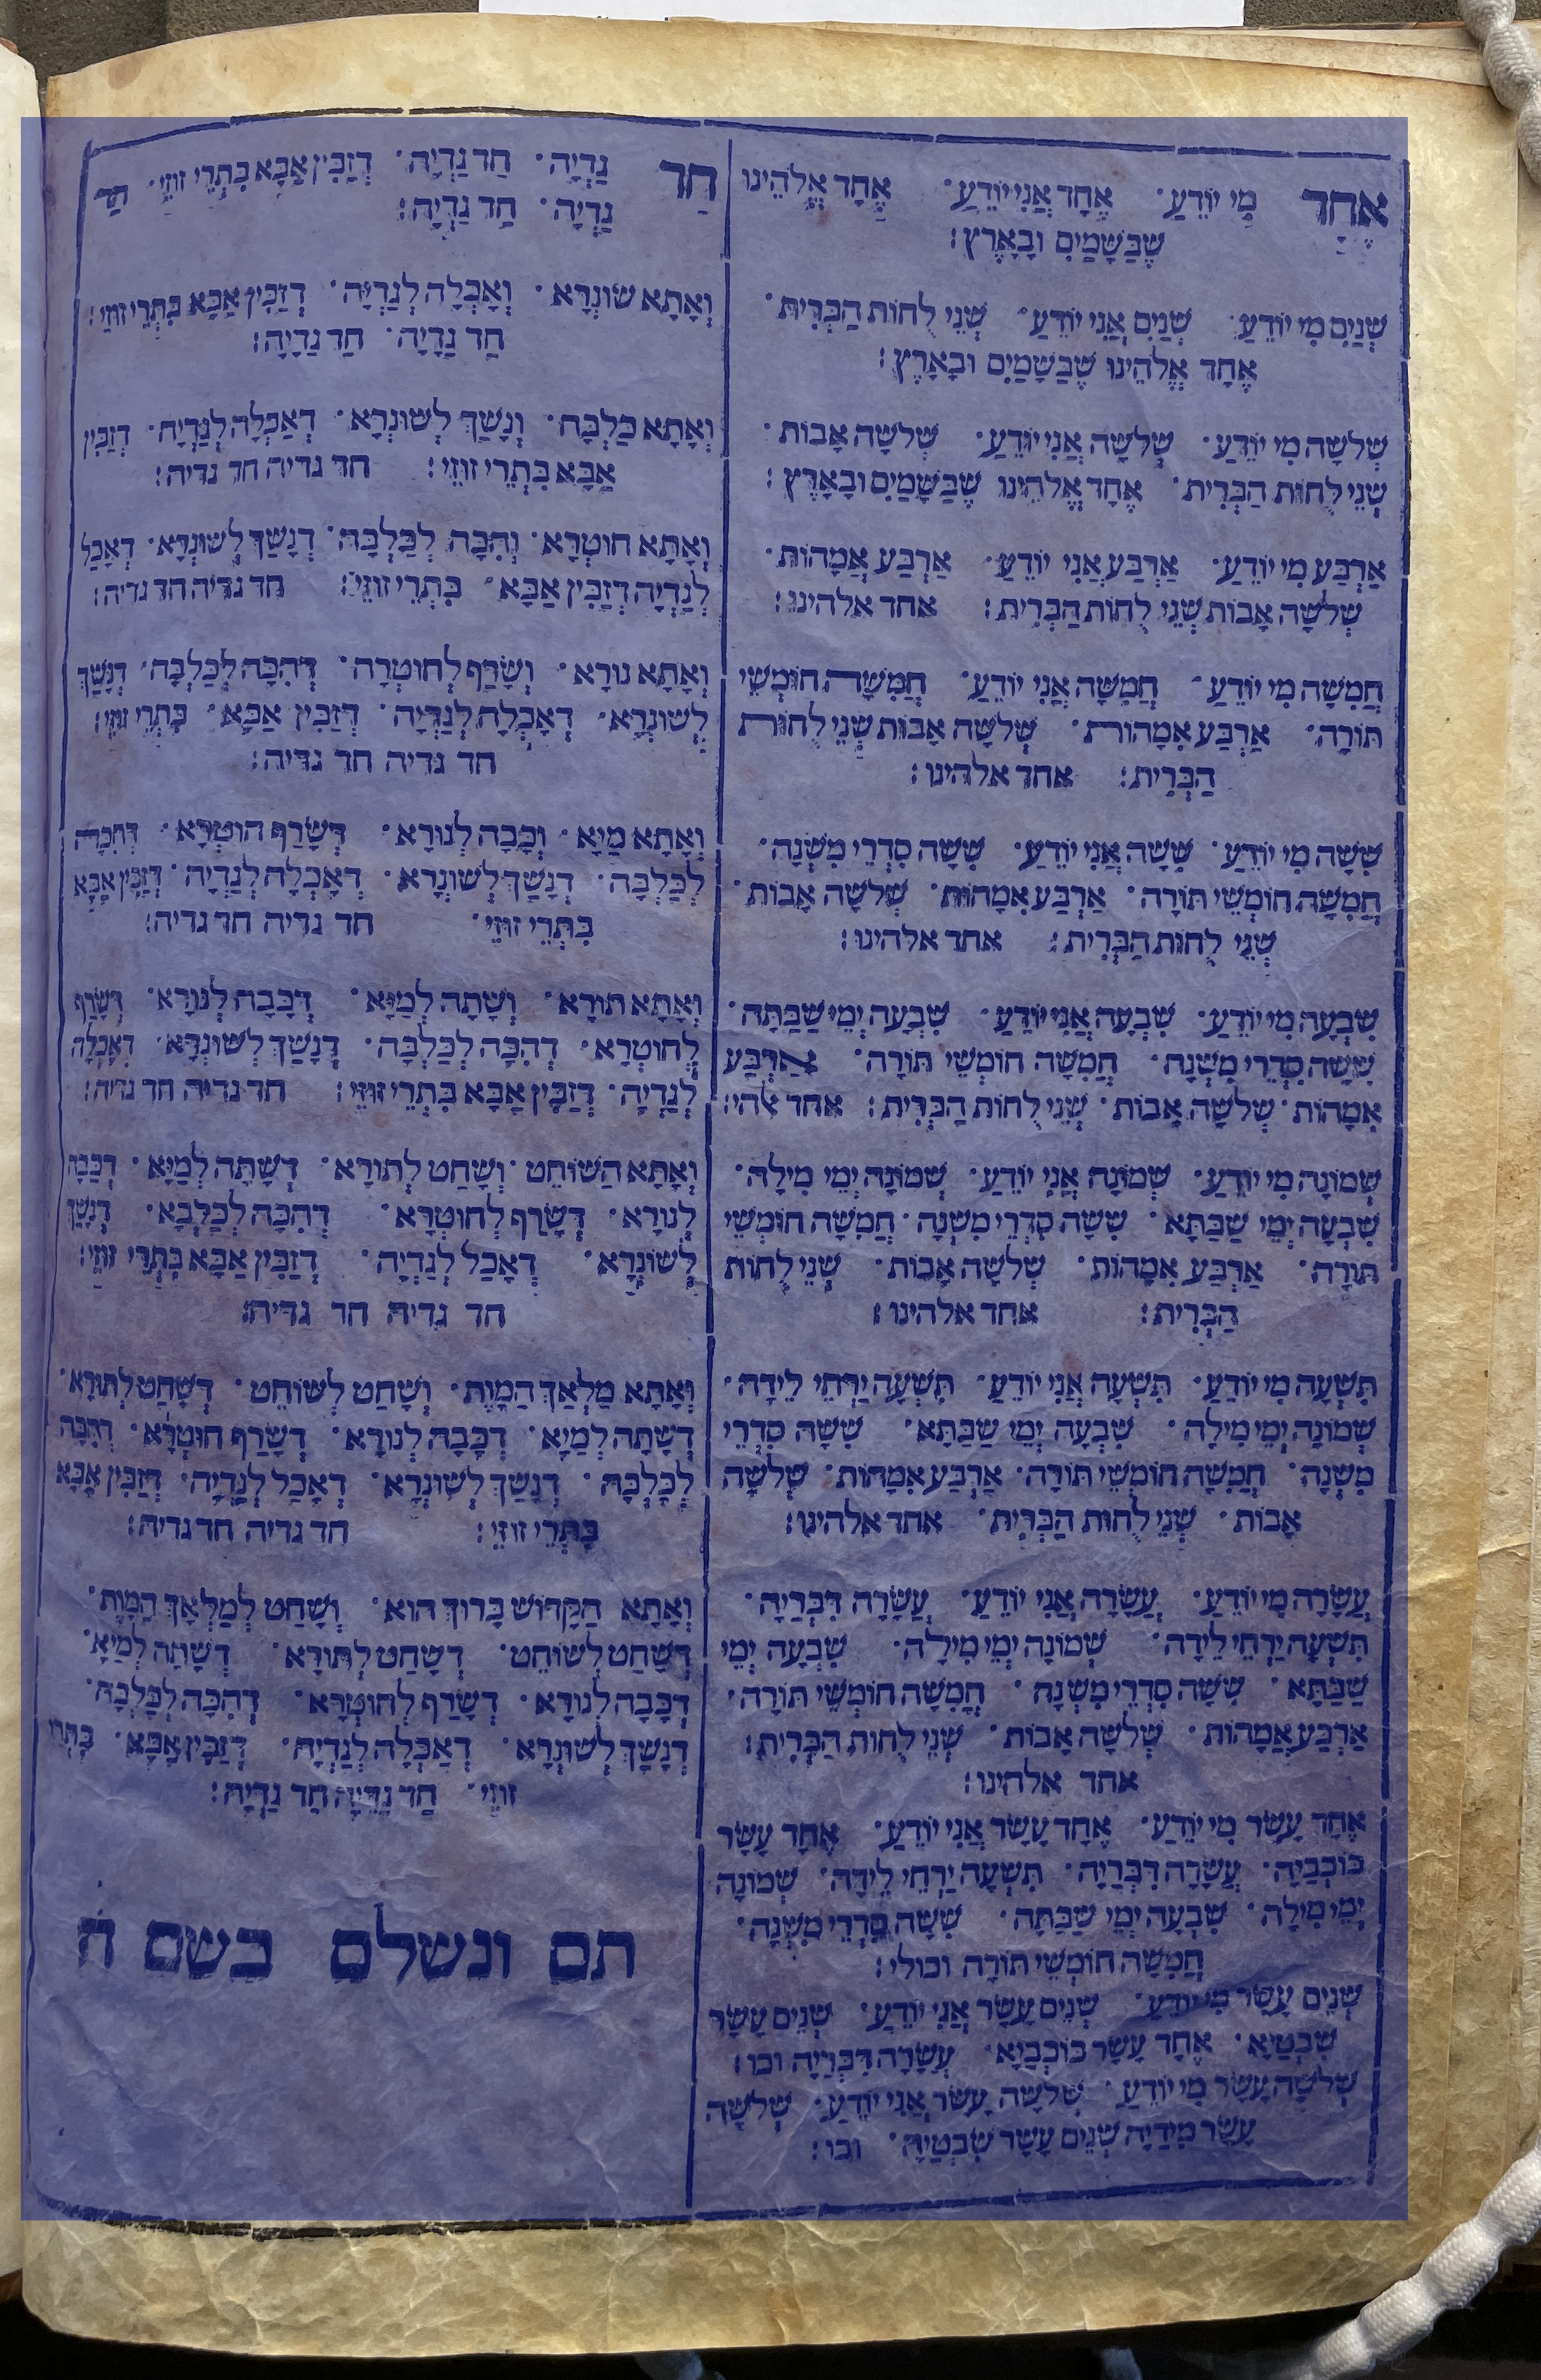 אֶחָד מִי יוֹדֵעַ · אֶחָד אֲנִי יוֹדֵעַ · אֶחָד אֱלֹהֵינוּ
שֶׁבַּשָּׁמַיִם וּבָאָרֶץ :
שְׁנַיִם מִי יוֹדֵעַ · שְׁנַיִם אֲנִי יוֹדֵעַ · שְׁנֵי לֻחוֹת הַבְּרִית ·
אֶחָד אֱלֹהֵינוּ שֶׁבַּשָּׁמַיִם וּבָאָרֶץ :
שְׁלשָׁה מִי יוֹדֵעַ · שְׁלשָׁה אֲנִי יוֹדֵעַ · שְׁלשָׁה אָבוֹת ·
שְׁנֵי לֻחוֹת הַבְּרִית · אֶחָד אֱלֹהֵינוּ שֶׁבַּשָּׁמַיִם וּבָאָרֶץ :
אַרְבַּע מִי יוֹדֵעַ · אַרְבַּע אֲנִי יוֹדֵעַ · אַרְבַּע אֲמָהוֹת ·
שְׁלשָׁה אָבוֹת שְׁנֵי לֻחוֹת הַבְּרִית : אחד אלהינו :
חֲמִשָּׁה מִי יוֹדֵעַ · חֲמִשָּׁה אֲנִי יוֹדֵעַ · חֲמִשָּׁה חוּמְשֵׁי
תּוֹרָה · אַרְבַּע אִמָהוֹת · שְׁלשָׁה אָבוֹת שְׁנֵי לֻחוֹת
הַבְּרִית : אחד אלהינו :
שִׁשָּׁה מִי יוֹדֵעַ · שִׁשָּׁה אֲנִי יוֹדֵעַ · שִׁשָּׁה סִדְרֵי מִשְׁנָה ·
חֲמִשָּׁה חוּמְשֵׁי תּוֹרָה · אַרְבַּע אִמָהוֹת · שְׁלשָׁה אָבוֹת ·
שְׁנֵי לֻחוֹת הַבְּרִית : אחד אלהינו :
שִׁבְעָה מִי יוֹדֵעַ · שִׁבְעָה אֲנִי יוֹדֵעַ · שִׁבְעָה יְמֵי שַׁבַּתָּה ·
שִׁשָּׁה סִדְרֵי מִשְׁנָה · חֲמִשָּׁה חוּמְשֵׁי תּוֹרָה · אַרְבַּע
אִמָהוֹת · שְׁלשָׁה אָבוֹת · שְׁנֵי לֻחוֹת הַבְּרִית : אחד אלהי :
שְׁמוֹנָה מִי יוֹדֵעַ · שְׁמוֹנָה אֲנִי יוֹדֵעַ · שְׁמוֹנָה יְמֵי מִילָה ·
שִׁבְעָה יְמֵי שַׁבַּתָּא · שִׁשָּׁה סִדְרֵי מִשְׁנָה · חֲמִשָּׁה חוּמְשֵׁי
תּוֹרָה · אַרְבַּע אִמָהוֹת · שְׁלשָׁה אָבוֹת · שְׁנֵי לֻחוֹת
הַבְּרִית : אחד אלהינו :
תִּשְׁעָה מִי יוֹדֵעַ · תִּשְׁעָה אֲנִי יוֹדֵעַ · תִּשְׁעָה יַרְחֵי לֵידָה ·
שְׁמוֹנָה יְמֵי מִילָה · שִׁבְעָה יְמֵי שַׁבַּתָּא · שִׁשָּׁה סִדְרֵי
מִשְׁנָה · חֲמִשָּׁה חוּמְשֵׁי תּוֹרָה · אַרְבַּע אִמָהוֹת · שְׁלשָׁה
אָבוֹת · שְׁנֵי לֻחוֹת הַבְּרִית · אחד אלהינו :
עֲשָׂרָה מִי יוֹדֵעַ · עֲשָׂרָה אֲנִי יוֹדֵעַ · עֲשָׂרָה דִּבְּרַיָּה ·
תִּשְׁעָה יַרְחֵי לֵידָה · שְׁמוֹנָה יְמֵי מִילָה · שִׁבְעָה יְמֵי
שַׁבַּתָּא · שִׁשָּׁה סִדְרֵי מִשְׁנָה · חֲמִשָּׁה חוּמְשֵׁי תּוֹרָה ·
אַרְבַּע אֲמָהוֹת · שְׁלשָׁה אָבוֹת · שְׁנֵי לֻחוֹת הַבְּרִית :
אחד אלהינו :
אֶחָד עָשָׂר מִי יוֹדֵעַ · אֶחָד עָשָׂר אֲנִי יוֹדֵעַ · אֶחָד עָשָׂר
כּוֹכְבַיָּה · עֲשָׂרָה דִּבְּרַיָּה · תִּשְׁעָה יַרְחֵי לֵידָה · שְׁמוֹנָה
יְמֵי מִילָה · שִׁבְעָה יְמֵי שַׁבַּתָּה · שִׁשָּׁה סִדְרֵי מִשְׁנָה ·
חֲמִשָּׁה חוּמְשֵׁי תּוֹרָה וכולי :
שְׁנֵים עָשָׂר מִי יוֹדֵעַ · שְׁנֵים עָשָׂר אֲנִי יוֹדֵעַ · שְׁנֵים עָשָׂר
שִׁבְטַיָּא · אֶחָד עָשָׂר כּוֹכְבַיָּא · עֲשָׂרָה דִּבְּרַיָּה וכו :
שְׁלשָׁה עָשָׂר מִי יוֹדֵעַ · שְׁלשָׁה עָשָׂר אֲנִי יוֹדֵעַ · שְׁלשָׁה
עָשָׂר מִידַיָּה שְׁנֵים עָשָׂר שִׁבְטַיָּה · וכו :
חַד גַּדְיָה · חַד גַּדְיָה · דְּזַבִּין אַבָּא בִּתְרֵי זוּזֵי · חַד
גַּדְיָה · חַד גַּדְיָה :
וְאָתָא שׁוּנְרָא · וְאָכְלָה לְגַדְיָה · דְּזַבִּין אַבָּא בִּתְרֵי זוּזֵי :
חַד גַּדְיָה · חַד גַּדְיָה :
וְאָתָא כַלְבָּה · וְנָשַׁךְ לְשׁוּנְרָא · דְּאָכְלָה לְגַדְיָה · דְּזַבִּין
אַבָּא בִּתְרֵי זוּזֵי : חד גדיה חד גדיה :
וְאָתָא חוּטְרָא · וְהִכָּה לְכַלְבָּה · דְּנָשַׁךְ לְשׁוּנְרָא · דְּאָכַל
לְגַדְיָה דְּזַבִּין אַבָּא · בִּתְרֵי זוּזֵי : חד גדיה חד גדיה :
וְאָתָא נוּרָא · וְשָׂרַף לְחוּטְרָה · דְּהִכָּה לְכַלְבָּה · דְּנָשַׁךְ
לְשׁוּנְרָא · דְּאָכְלָה לְגַדְיָה · דְּזַבִּין אַבָּא · בִּתְרֵי זוּזֵי :
חד גדיה חד גדיה :
וְאָתָא מַיָּא · וְכָבָה לְנוּרָא · דְּשָׂרַף חוּטְרָא · דְּהִכָּה
לְכַלְבָּה · דְּנָשַׁךְ לְשׁוּנְרָא · דְּאָכְלָה לְגַדְיָה · דְּזַבִּין אַבָּא
בִּתְרֵי זוּזֵי · חד גדיה חד גדיה :
וְאָתָא תוֹרָא · וְשָׁתָה לְמַיָּא · דְּכָבָה לְנוּרָא · דְּשָׂרַף
לְחוּטְרָא · דְּהִכָּה לְכַלְבָּה · דְּנָשַׁךְ לְשׁוּנְרָא · דְּאָכְלָה
לְגַדְיָה · דְּזַבִּין אַבָּא בִּתְרֵי זוּזֵי : חד גדיה חד גדיה :
וְאָתָא הַשּׁוֹחֵט · וְשָׁחַט לְתוֹרָא · דְּשָׁתָה לְמַיָּא · דְּכָבָה
לְנוּרָא · דְּשָׂרַף לְחוּטְרָא · דְּהִכָּה לְכַלְבָּא · דְּנָשַׁךְ
לְשׁוּנְרָא · דְּאָכַל לְגַדְיָה · דְּזַבִּין אַבָּא בִּתְרֵי זוּזֵי :
חד גדיה חד גדיה :
וְאָתָא מַלְאַךְ הַמָּוֶת · וְשָׁחַט לְשׁוֹחֵט · דְּשָׁחַט לְתוֹרָא ·
דְּשָׁתָה לְמַיָּא · דְּכָבָה לְנוּרָא · דְּשָׂרַף חוּטְרָא · דְּהִכָּה
לְכַלְבָּה · דְּנָשַׁךְ לְשׁוּנְרָא · דְּאָכַל לְגַדְיָה · דְּזַבִּין אַבָּא
בִּתְרֵי זוּזֵי : חד גדיה חד גדיה :
וְאָתָא הַקָּדוֹשׁ בָּרוּךְ הוּא · וְשָׁחַט לְמַלְאַךְ הַמָּוֶת ·
דְּשָׁחַט לְשׁוֹחֵט · דְּשָׁחַט לְתוֹרָא · דְּשָׁתָה לְמַיָּא ·
דְּכָבָה לְנוּרָא · דְּשָׂרַף לְחוּטְרָא · דְּהִכָּה לְכַלְבָּה ·
דְּנָשַׁךְ לְשׁוּנְרָא · דְּאָכְלָה לְגַדְיָה · דְּזַבִּין אַבָּא · בִּתְרֵי
זוּזֵי · חַד גַּדְיָה חַד גַּדְיָה :
תם ונשלם בשם ה